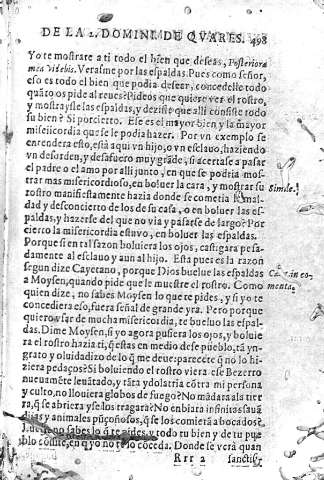 DE LA 2. DOMINI. DE QVARES. 498
Yo te mostrare a ti todo el bien que deseas, Posteriora
mea videbis. Verasme por las espaldas. Pues como señor,
eso es todo el bien que podia desear, concedelle todo
quãto os pide al reues? Pideos que quiere ver el rostro,
y mostraysle las espaldas, y dezisle que alli consiste todo
su bien? Si por cierto. Ese es el mayor bien y la mayor
misericordia que se le podia hazer. Por vn exemplo se
entendera esto, està aqui vn hijo, o vn esclauo, haziendo
vn desorden, y desafuero muy grãde, si acertase a pasar
el padre o el amo por alli junto, en que se podria mos-
trar mas misericordioso, en boluer la cara, y mostrar su
rostro manifiestamente hazia donde se cometia
Simile.
y desconcierto de los de su casa, o en boluer las es-
paldas, y hazerse del que no via y pasarse de largo? Por
cierto la misericordia estuuo, en boluer las espaldas.
Porque si en tal sazon boluiera los ojos, castigara pesa-
damente al esclauo y aun al hijo. Esta pues es la razon
segun dize Cayetano, porque Dios buelue las espaldas
a Moysen, quando pide que le muestre el rostro. Como
quien dize, no sabes Moysen lo que te pides, y si yo te
concediera eso, fuera señal de grande yra. Pero porque
quiero vsar de mucha misericordia, te bueluo las espal-
das. Dime Moysen, si yo agora pusiera los ojos, y boluie-
ra el rostro hazia ti, q̃ estas en medio dese pueblo, tã yn-
grato y oluidadizo de lo q̃ me deue: parecete q̃ no lo hi-
ziera pedaços? Si boluiendo el rostro viera ese Bezerro
nueuamẽte leuãtado, y tãta ydolatria cõtra mi persona
y culto, no llouiera globos de fuego? No mãdara a la tier
ra, q̃ se abriera y se los tragara? No enbiara infinitas
y animales põçoñosos, q̃ se los comierã a bocados?
no sabes lo q̃ te pides, y todo tu bien y de tu pue
blo cõsiste, en q̃ yo no te lo cõceda. Donde se verà quan
Rrr 2 sanctif